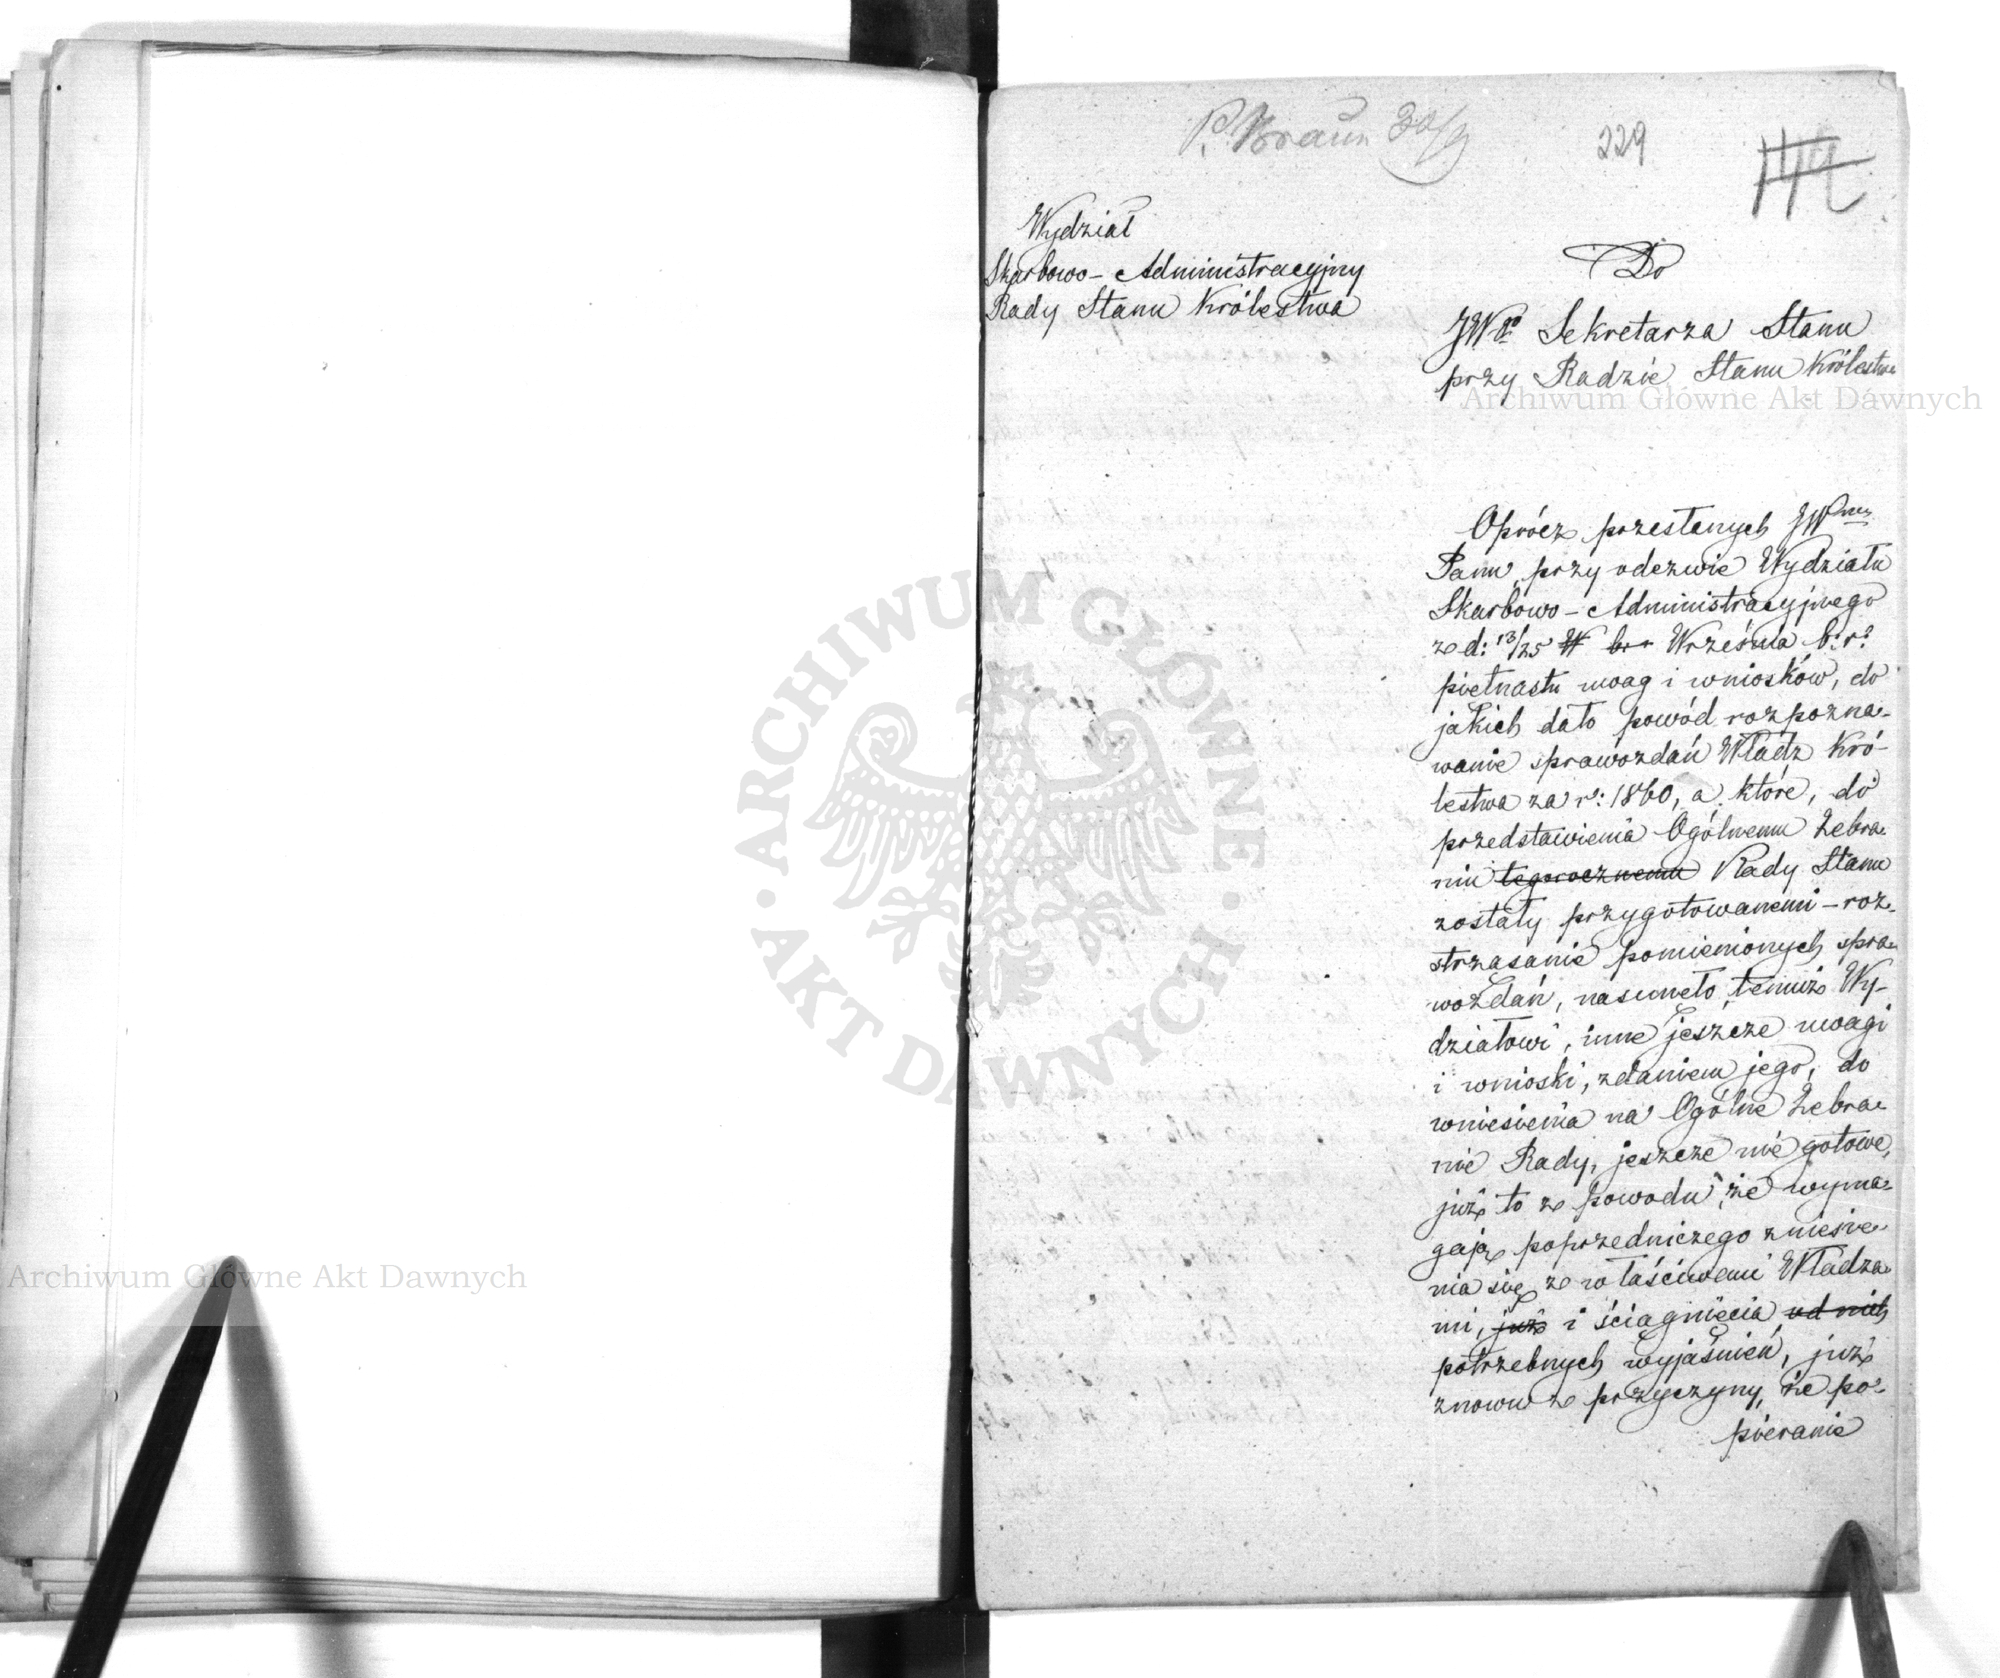 P. Braun 30/9
229
142
Wydział
Skarbowo-Administracyjny
Rady Stanu Królestwa
Do
JWgo Sekretarza Stanu
przy Radzie Stanu Królestwa
Oprócz przesłanych JWmu
Panu, przy odezwie Wydziału
Skarbowo-Administracyjnego
z d: 13/25 W b. r Września b: r:
piętnastu uwag i wniosków, do
jakich dało powód rozpozna-
wanie sprawozdań Władz Kró-
lestwa za r: 1860, a które, do
przedstawienia Ogólnemu Zebra-
niu tegorocznemu Rady Stanu
zostały przygotowanemi – roz-
strząsanie pomienionych spra-
wozdań, nasunęło temuż Wy-
działowi, inne jeszcze uwagi
i wnioski, zdaniem jego, do
wniesienia na Ogólne Zebra-
nie Rady, jeszcze nie gotowe,
już to z powodu, że wyma-
gają poprzedniczego zniesie-
nia się z właściwemi Władza-
mi, już i ściągnięcia od nich
potrzebnych wyjaśnień, już
znowu z przyczyny, że po-
pieranie
Archiwum Główne Akt Dawnych
ARCHIWUM GŁÓWNE
AKT DAWNYCH
Archiwum Główne Akt Dawnych